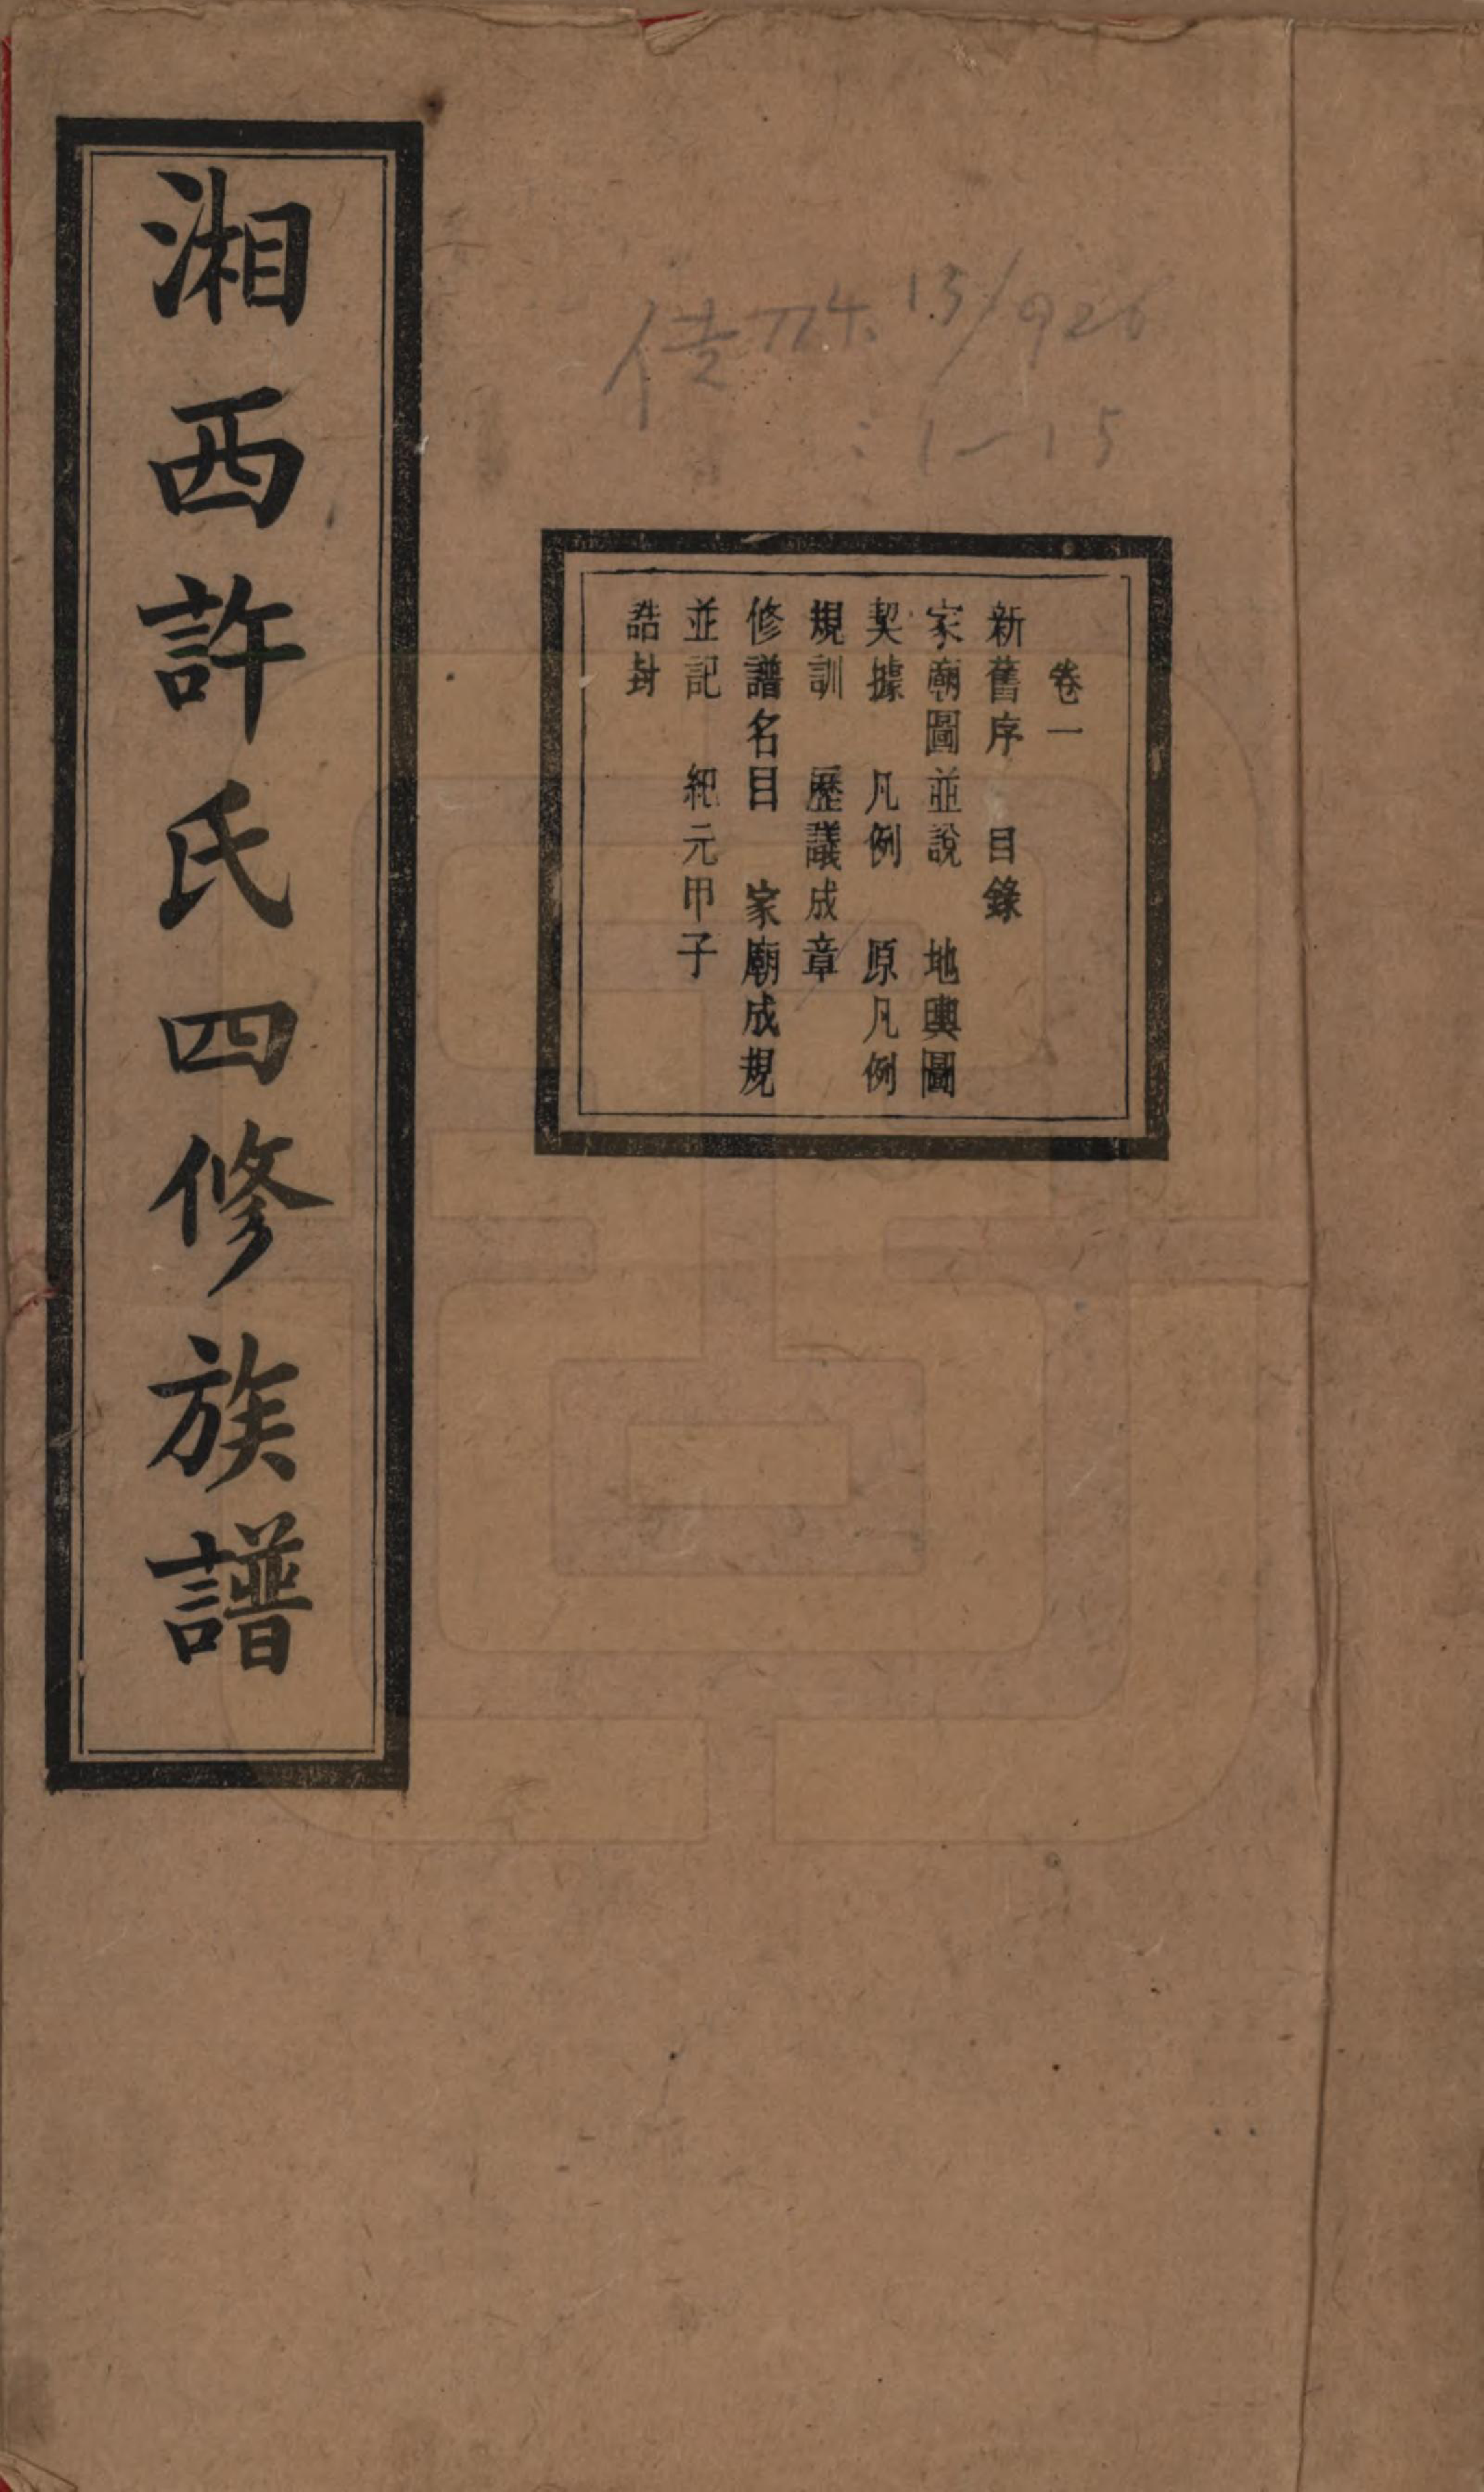 湘西許氏四修族譜
卷一
新舊序　目錄
家廟圖並說　地輿圖
契據　凡例　原凡例
規訓　歷議成章
修譜名目　家廟成規
並記　紀元甲子
誥封
13/926
:1-15